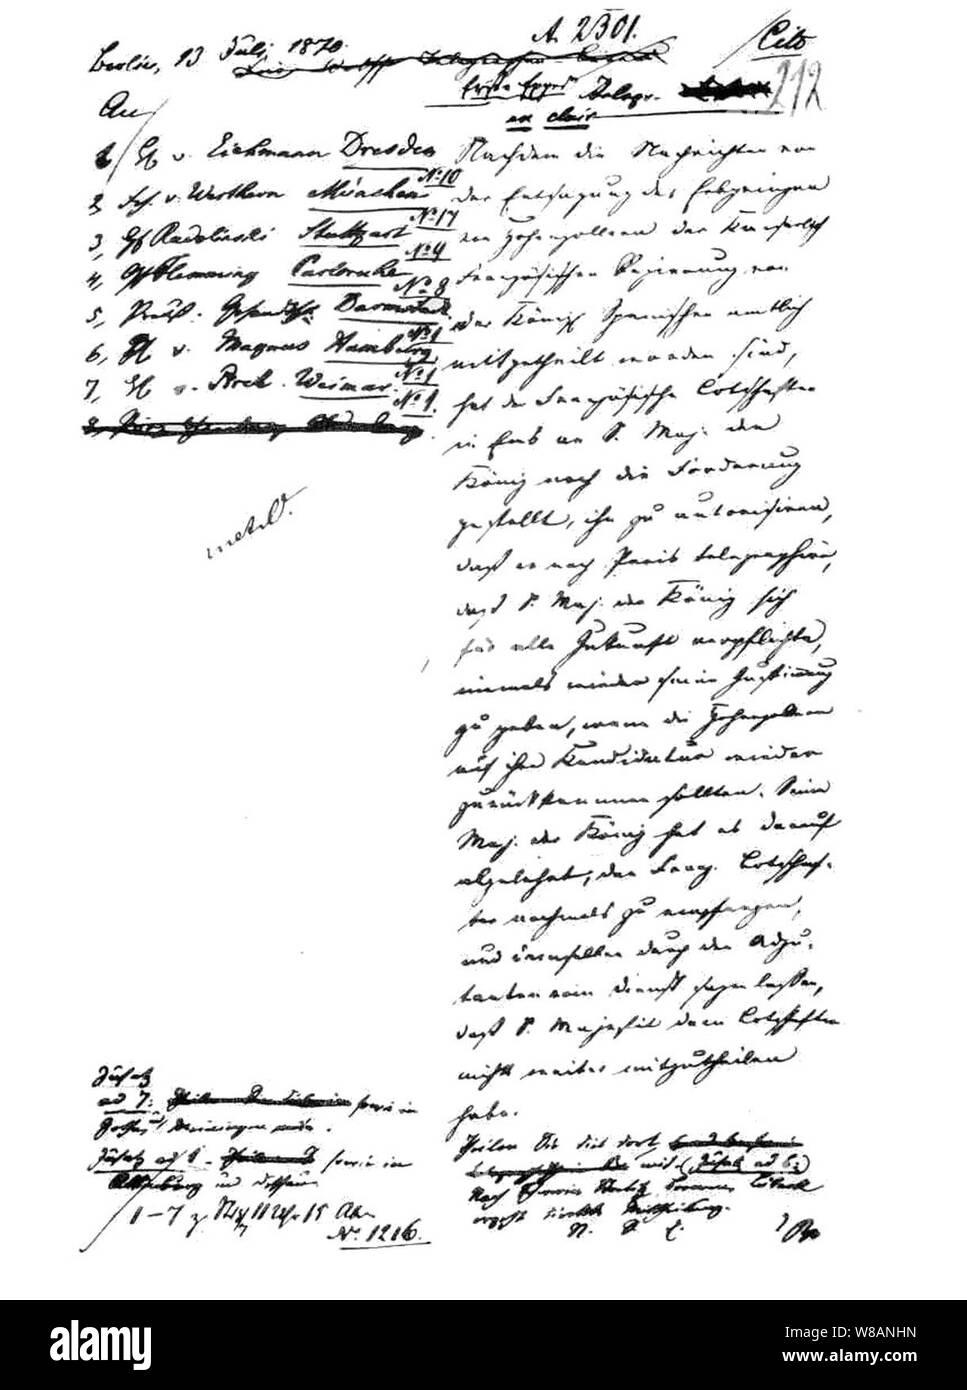 Berlin, 13 Juli 1870.
A. 2301.
Cito
212
Telegr.
en clair
An
1, Gf v. Eichmann Dresden No 10
2, Frh. v. Werthern München No 17
3, Gf Radolinski Stuttgart No 9
4, Gf Flemming Carlsruhe No 8
5, Preuß. Gesandtsch. Darmstadt No 1
6, H v. Magnus Hamburg No 1
7, v. Weimar No 1
Nachdem die Nachrichten von
der Entsagung des Erbprinzen
von Hohenzollern der Kaiserlich
Französischen Regierung von
der Königl Spanischen amtlich
mitgetheilt worden sind,
hat der Französische Botschafter
in Ems an S. Maj. den
König noch die Forderung
gestellt, ihn zu autorisiren,
daß er nach Paris telegraphire,
daß S. Maj. der König sich
für alle Zukunft verpflichte,
niemals wieder seine Zustimmung
zu geben, wenn die Hohenzollern
auf ihre Kandidatur wieder
zurückkommen sollten. Seine
Maj. der König hat es darauf
abgelehnt, den Franz. Botschaf-
ter nochmals zu empfangen,
und demselben durch den Adju-
tanten vom Dienst sagen lassen,
daß S. Majestät dem Botschafter
nichts weiter mitzutheilen
habe.
Zusatz
ad 7: sowie in
Gotha, Meiningen
Zusatz ad 1 sowie in
Altenburg und Dessau
1-7 z. Stg 11 Uhr 15
No. 1216.
Theilen Sie dies dort
mit (Zusatz ad 6:)
Nach Bremen Lübeck
ergeht direkte Mittheilung.
N. S. E.
alamy
Image ID: W8ANHN
www.alamy.com